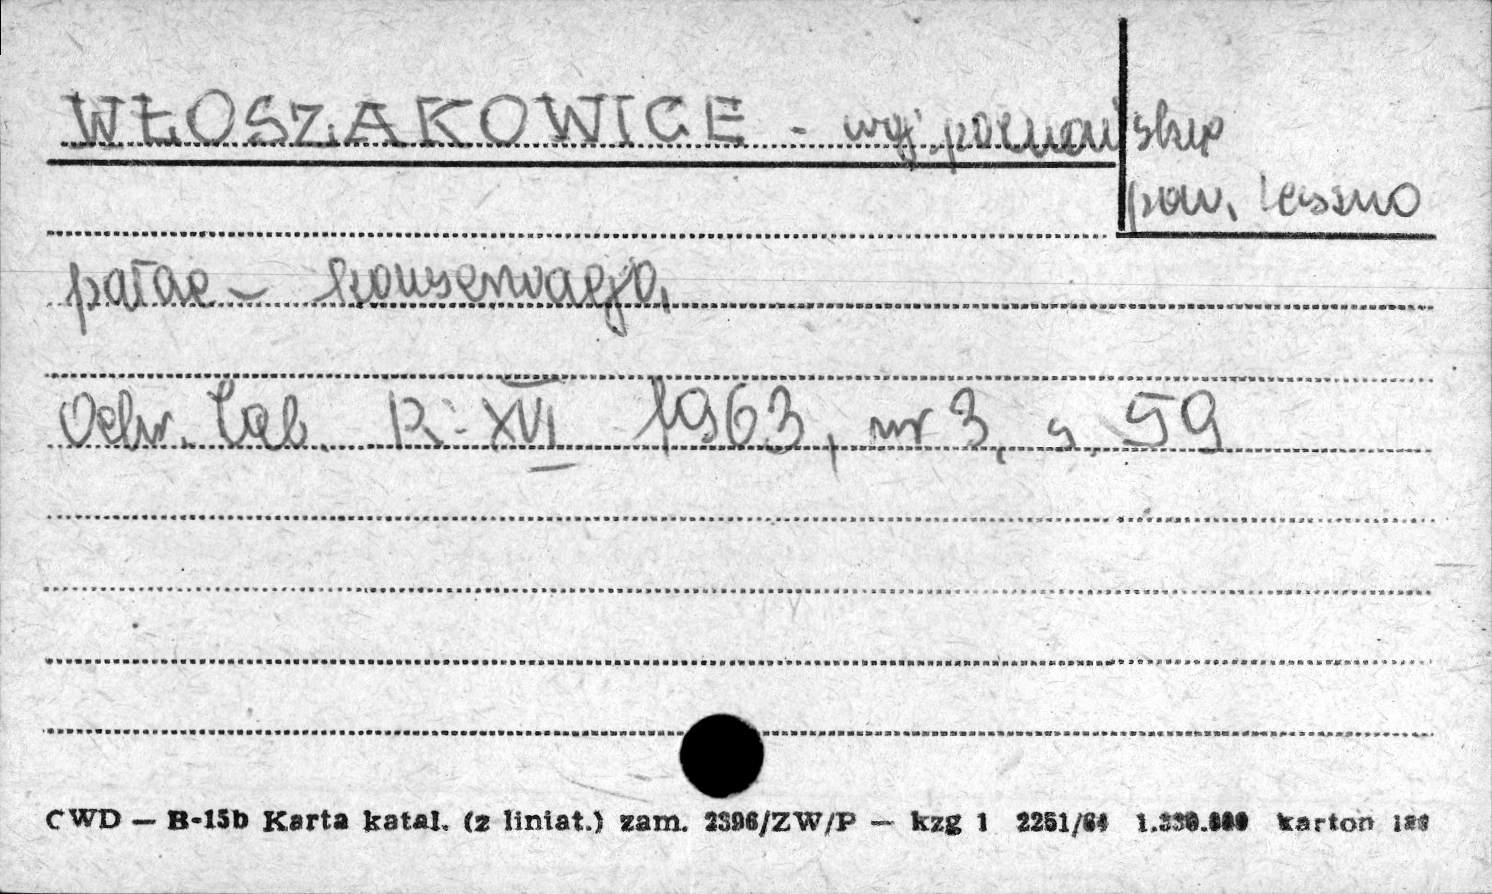 WŁOSZAKOWICE - woj. poznańskie
pow. Leszno
pałac – konserwacja,
Ochr. Zab. R: XVI 1963, nr 3, s. 59
CWD — B-15b Karta katal. (z liniat.) zam. 2396/ZW/P — kzg 1 2251/64 karton